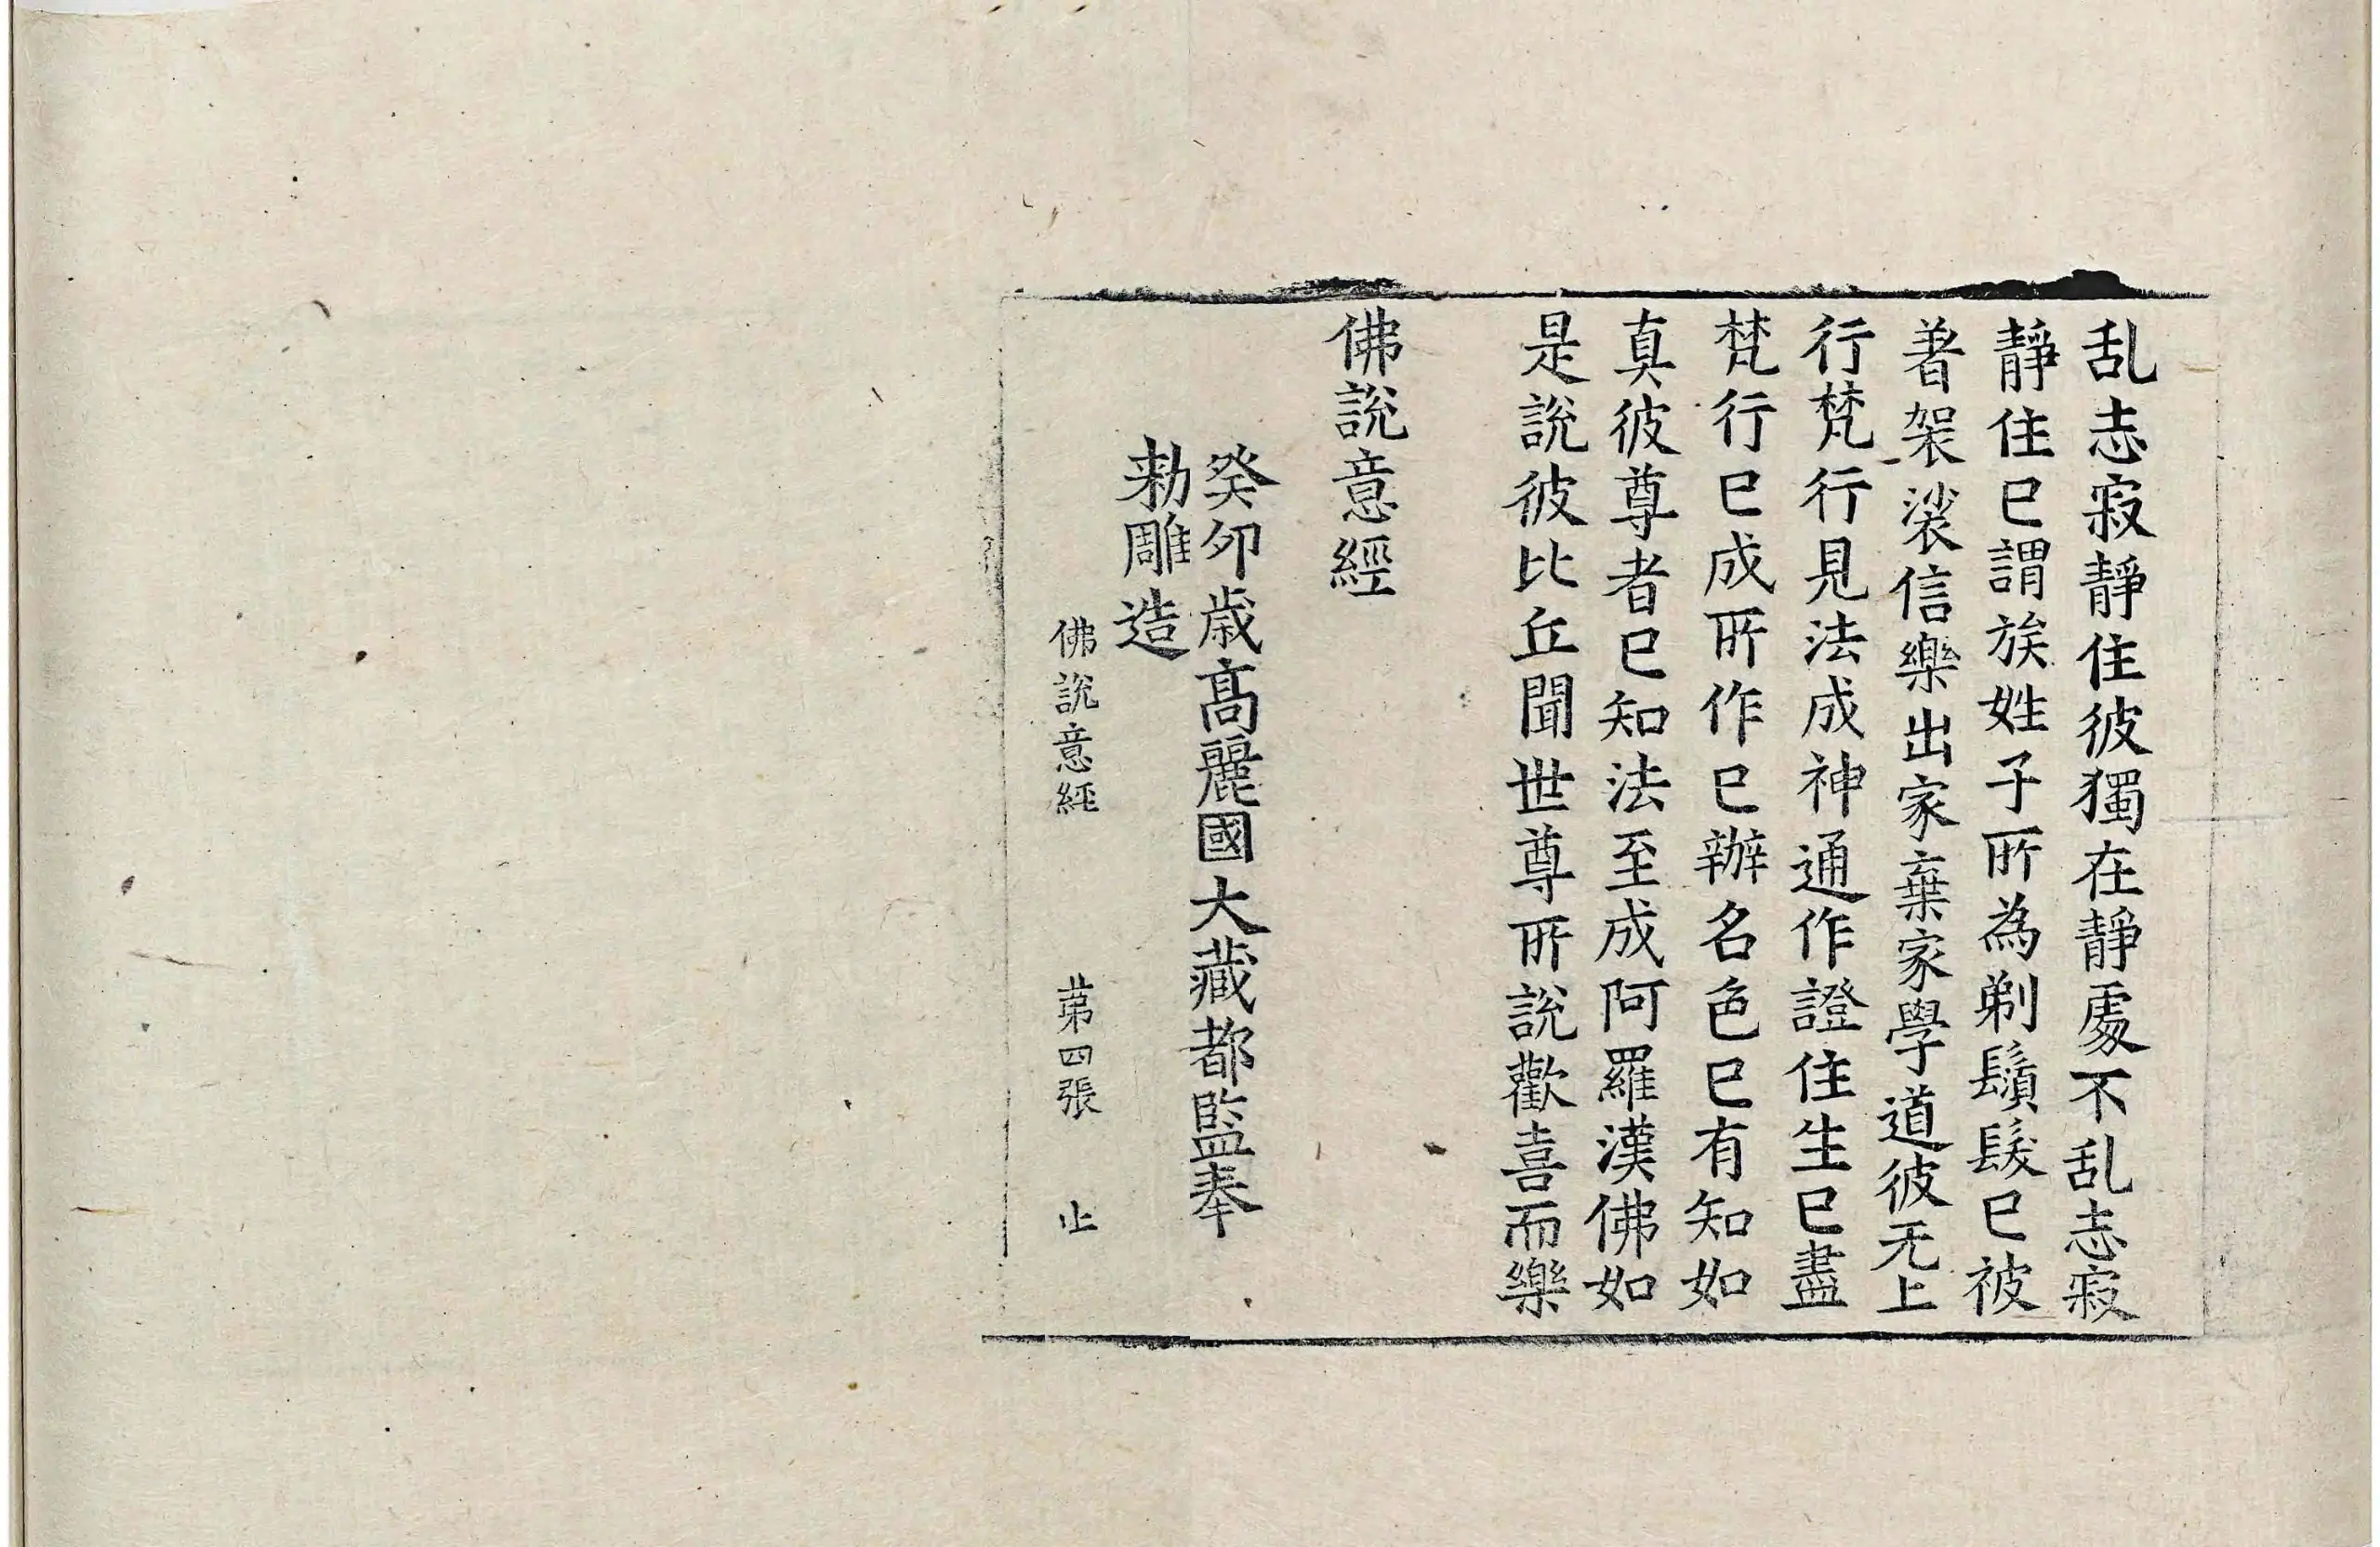 乱志寂靜住彼獨在靜處不乱志寂
靜住已謂族姓子所為剃鬚髮已被
著袈裟信樂出家棄家學道彼无上
行梵行見法成神通作證住生已盡
梵行已成所作已辦名色已有知如
真彼尊者已知法至成阿羅漢佛如
是說彼比丘聞世尊所說歡喜而樂
佛說意經
癸卯歲高麗國大藏都監奉
勑雕造
佛說意經 苐四張 止